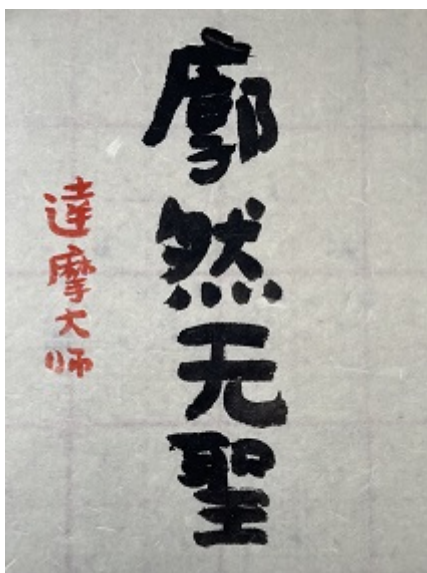 廓然无聖
達摩大师